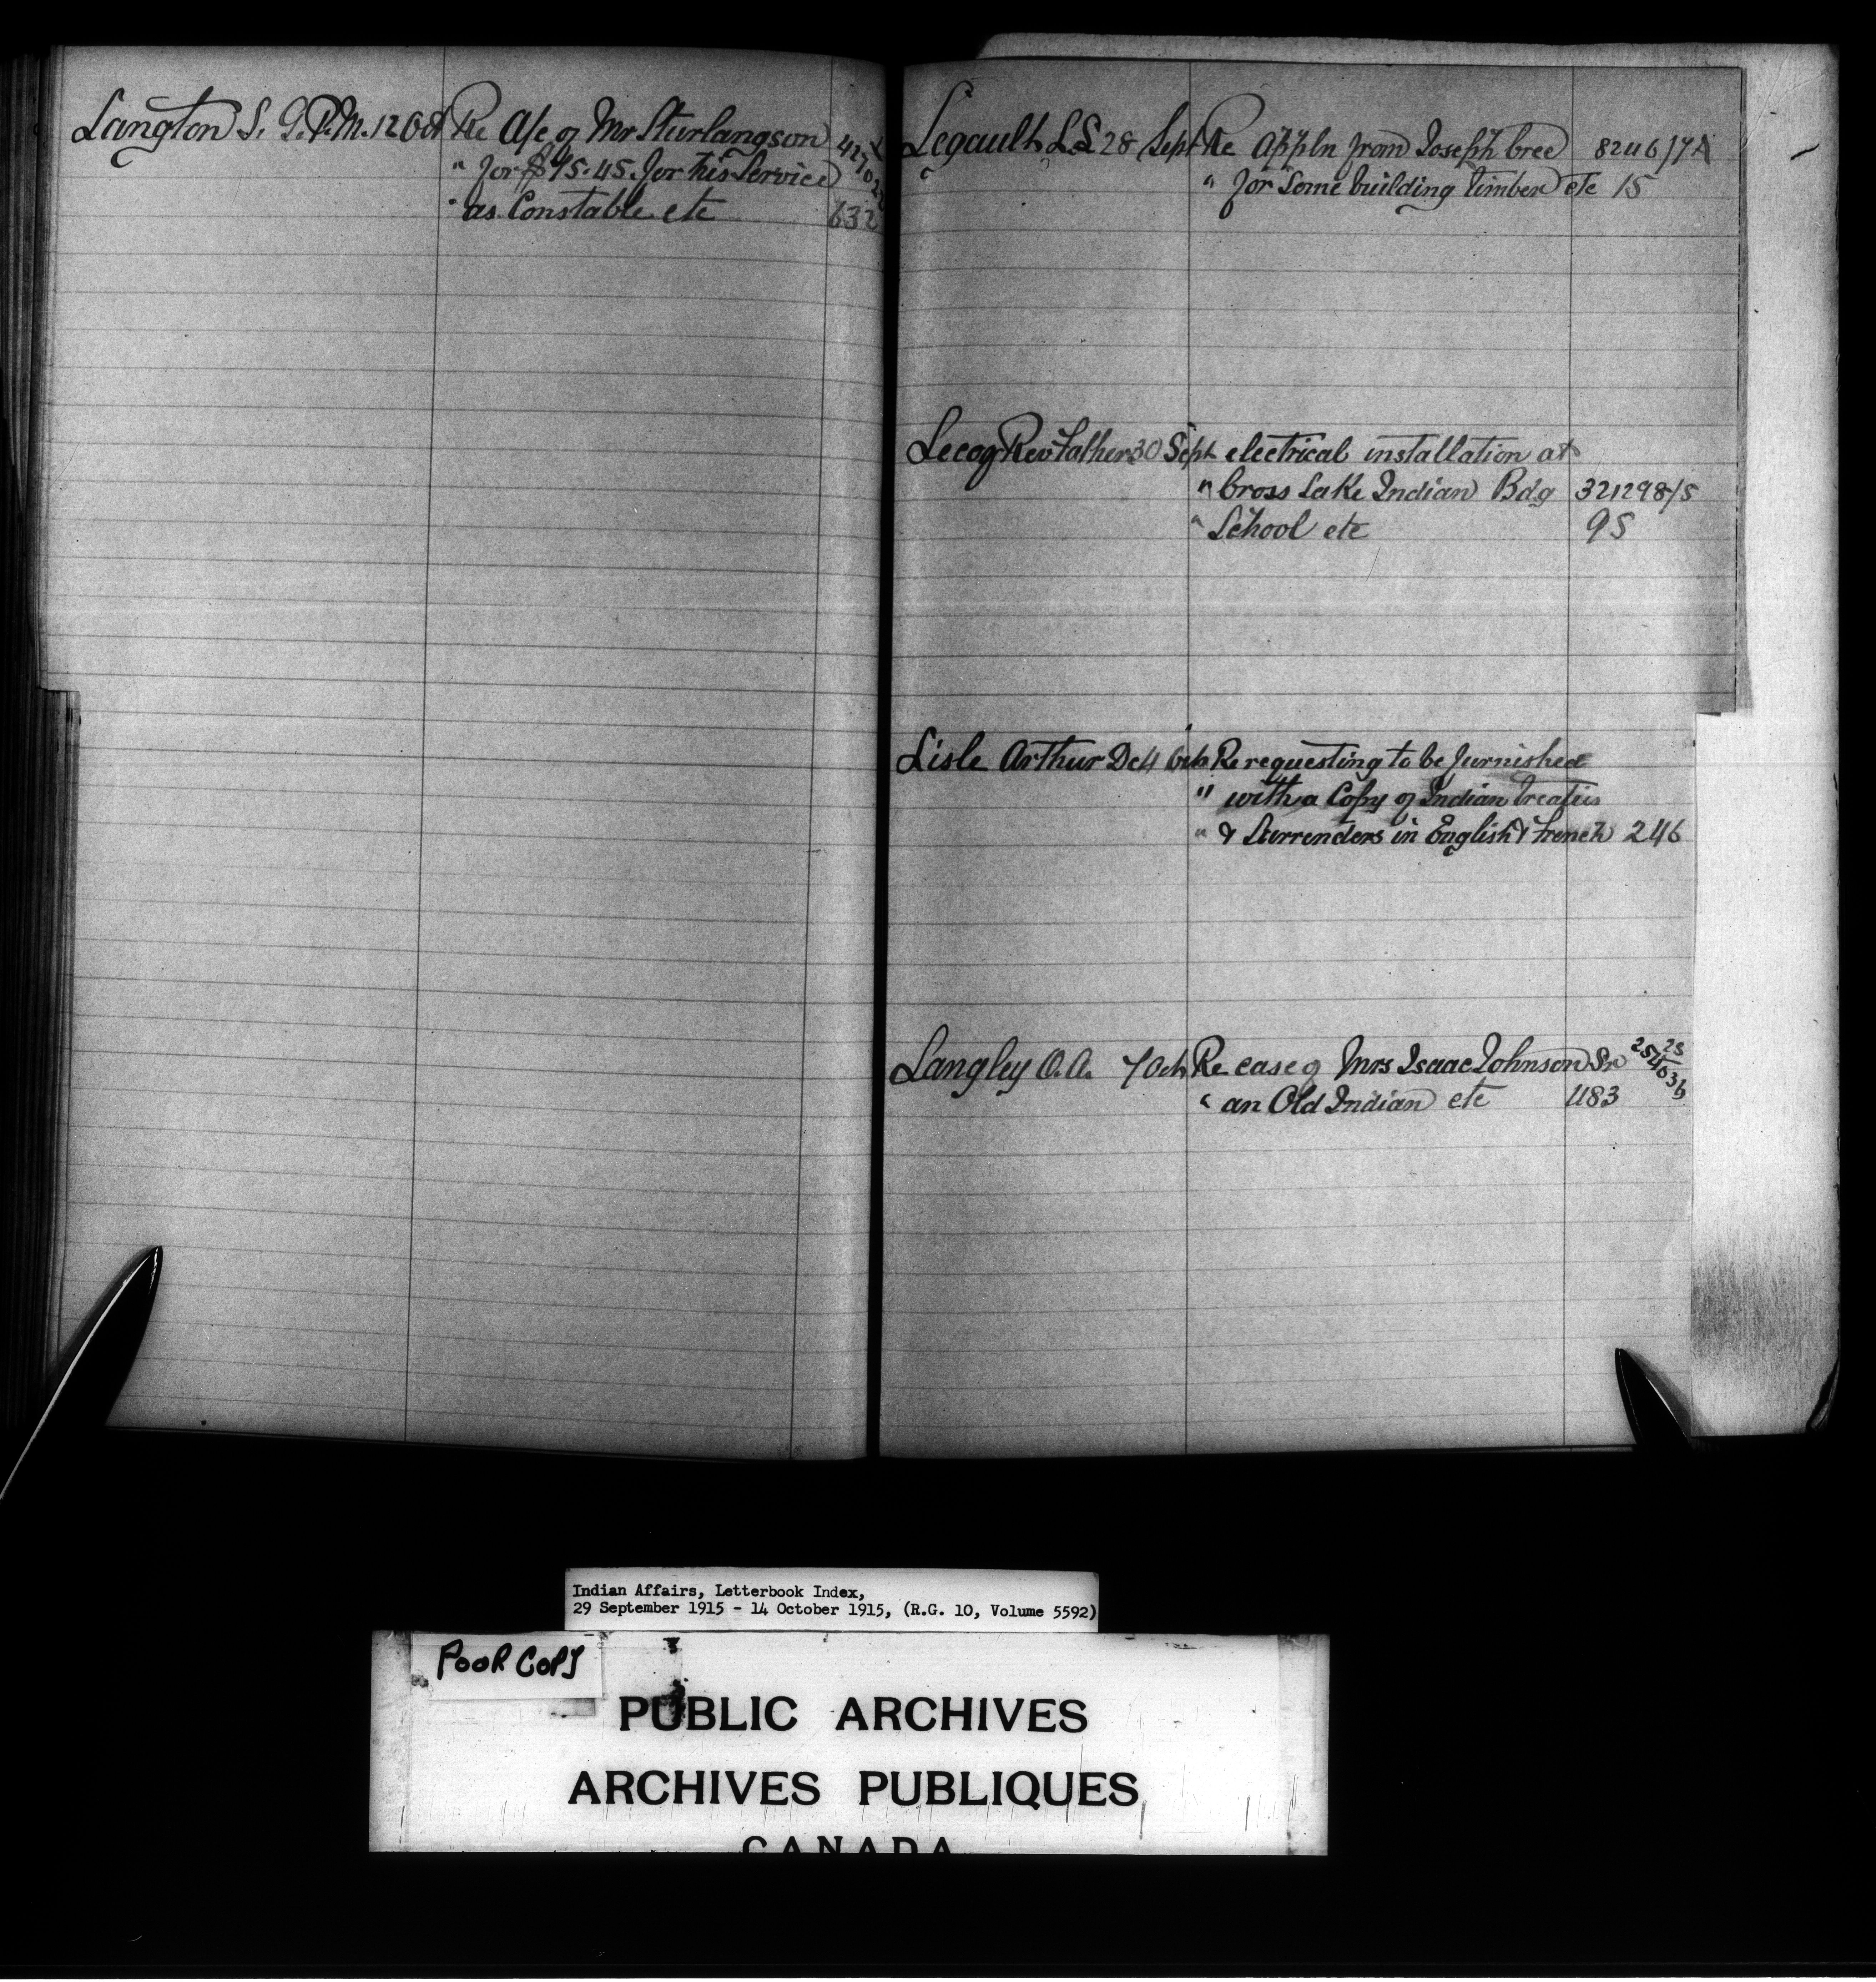 Langton S. G. P.M. 12 Oct Re A/c of Mr Sturlangson
" for $95.45. for his Service
" as Constable etc 632
Legault L.S. 28 Sept Re Appln from Joseph Cree 8246/7A
" for Some building timber etc 15
Lecoq Rev Father 30 Sept electrical installation at
" Cross Lake Indian Bdg 321298/5
" School etc 95
Lisle Arthur De 4 Oct Re requesting to be furnished
" with a Copy of Indian Treaties
" & Surrenders in English & French 246
Langley O.A. 7 Oct Re case of Mrs Isaac Johnson Sr
" an Old Indian etc 483
Indian Affairs, Letterbook Index,
29 September 1915 - 14 October 1915, (R.G. 10, Volume 5592)
POOR COPY
PUBLIC ARCHIVES
ARCHIVES PUBLIQUES
CANADA